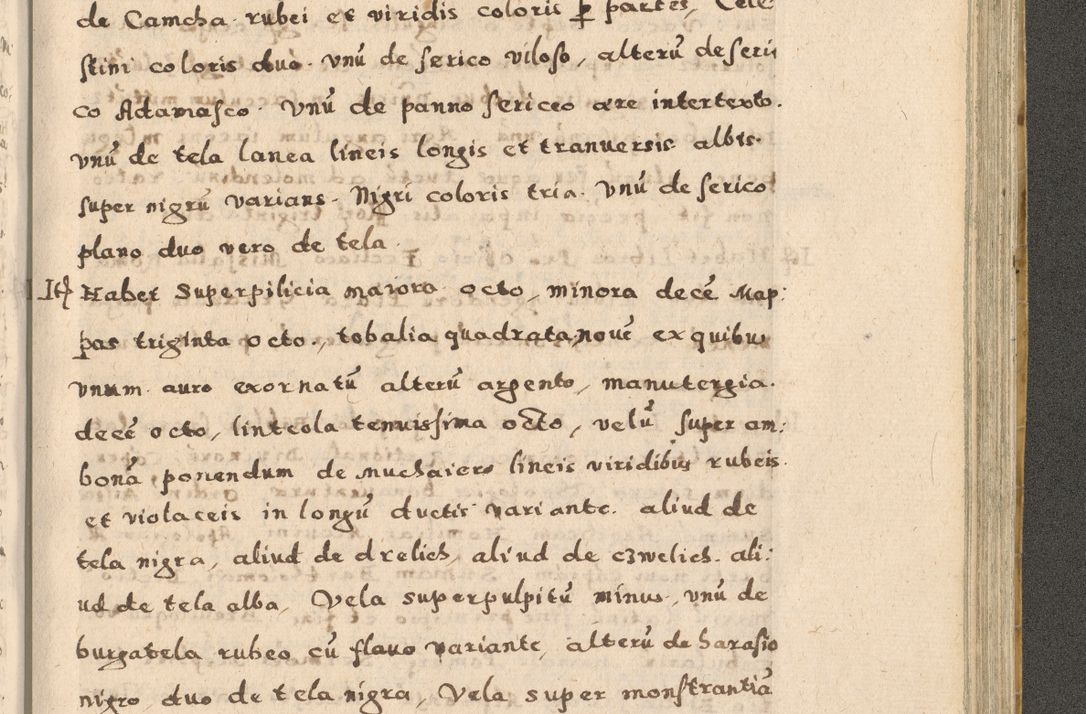 de Camcha rubei et viridis coloris ꝑ partes, Cele
stini coloris duo. vnũ de serico viloso, alterũ de seri
co Adamasco. Vnũ de panno sericeo ære intertexto.
vnũ de tela lanea lineis longis et tranuersis albis
super nigrũ varians. Nigri coloris tria. Vnũ de serico
plano duo vero de tela.
Itẽ Habet Superpilicia maiora octo, minora decẽ Map:
pas triginta octo, tobalia quadrata, nouẽ ex quibus
vnum auro exornatũ alterũ argento, manutergia.
decẽ octo, linteola tenuissima octo, velũ super am:
bonã ponendum de muchaiero lineis viridibus rubeis
et violaceis in longũ ductis variante. aliud de
tela nigra, aliud de drelich, aliud de czwelich. ali:
ud de tela alba, Vela super pulpitũ minus, vnũ de
burgatela rubeo cũ flauo variante, alterũ de harasio
nigro, duo de tela nigra, Vela super monstrantiã